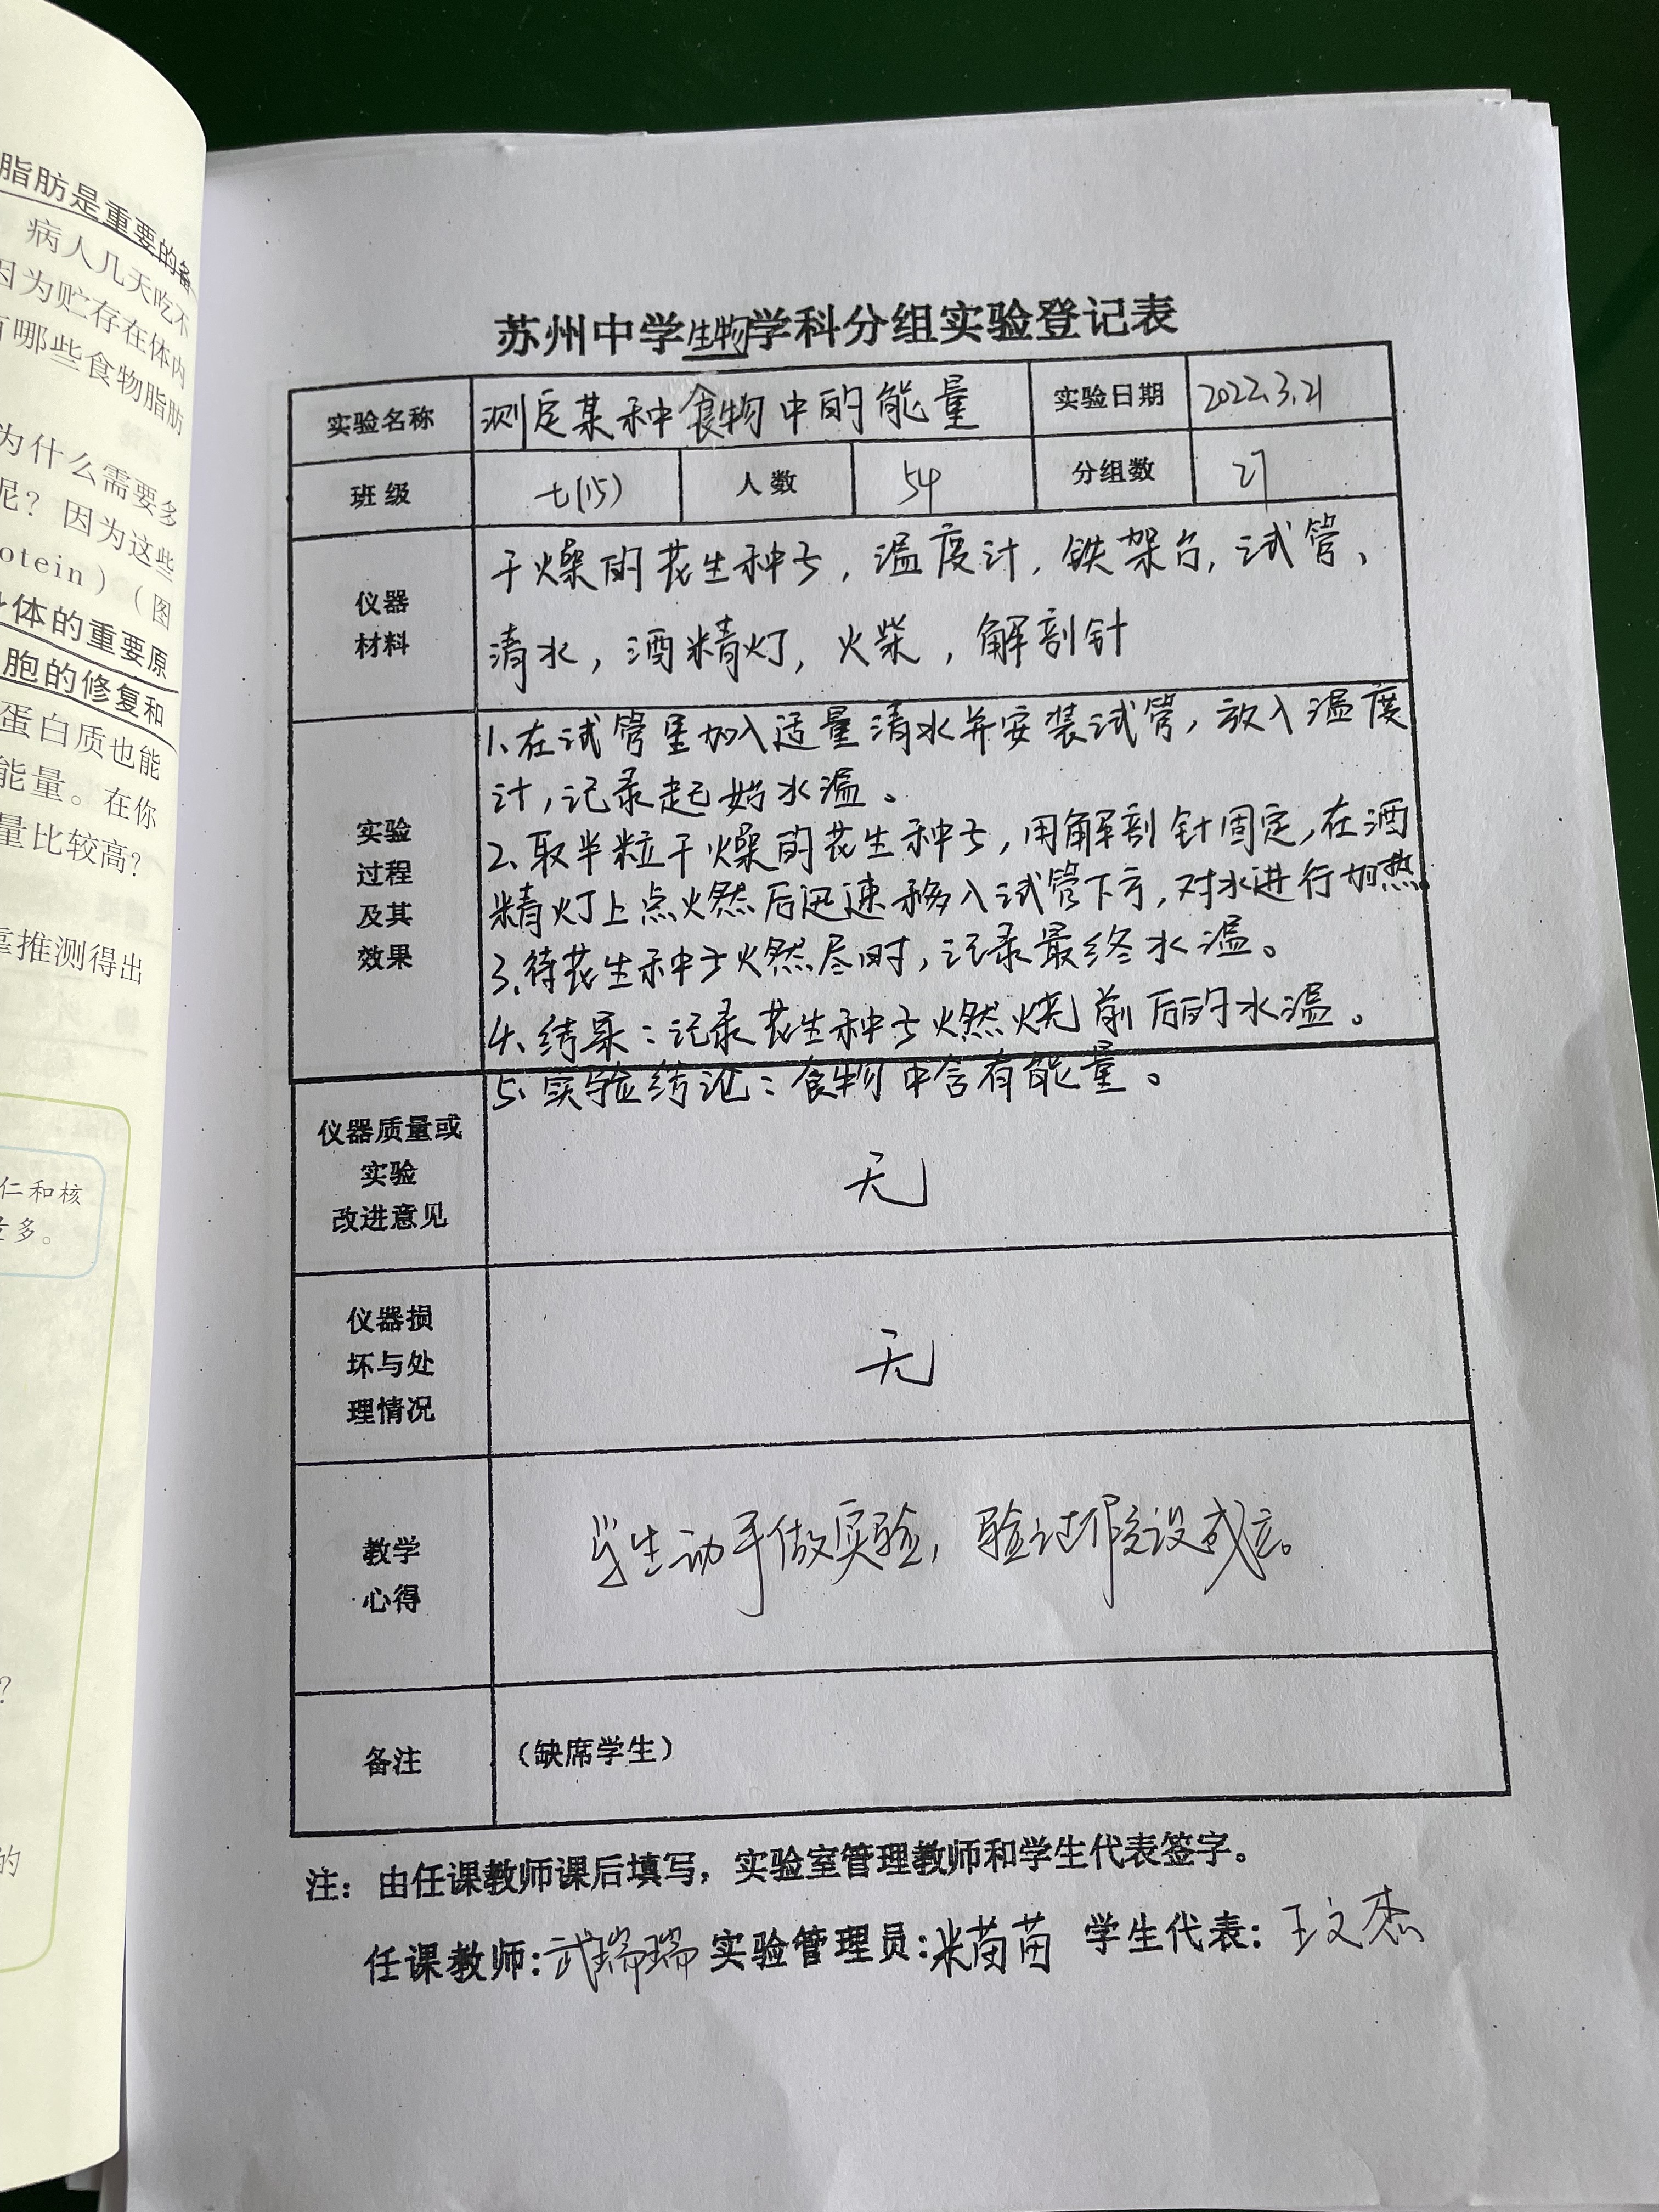 脂肪是重要的备
病人几天吃不
因为贮存在体内
有哪些食物脂肪
为什么需要多
呢？因为这些
otein）（图
体的重要原
胞的修复和
蛋白质也能
能量。在你
量比较高？
推测得出
仁和核
多。
？
的
苏州中学生物学科分组实验登记表
实验名称 测定某种食物中的能量 实验日期 2022.3.21
班级 七(15) 人数 54 分组数 27
仪器
材料
干燥的花生种子，温度计，铁架台，试管、
清水，酒精灯，火柴，解剖针
实验
过程
及其
效果
1、在试管里加入适量清水并安装试管，放入温度
计，记录起始水温。
2、取半粒干燥的花生种子，用解剖针固定，在酒
精灯上点燃后迅速移入试管下方，对水进行加热。
3、待花生种子燃尽时，记录最终水温。
4、结果：记录花生种子燃烧前后的水温。
5、实验结论：食物中含有能量。
仪器质量或
实验
改进意见
无
仪器损
坏与处
理情况
无
教学
心得
学生动手做实验，验证假设成立。
备注 （缺席学生）
注：由任课教师课后填写，实验室管理教师和学生代表签字。
任课教师：武瑞瑞 实验管理员：米苗苗 学生代表：王文杰